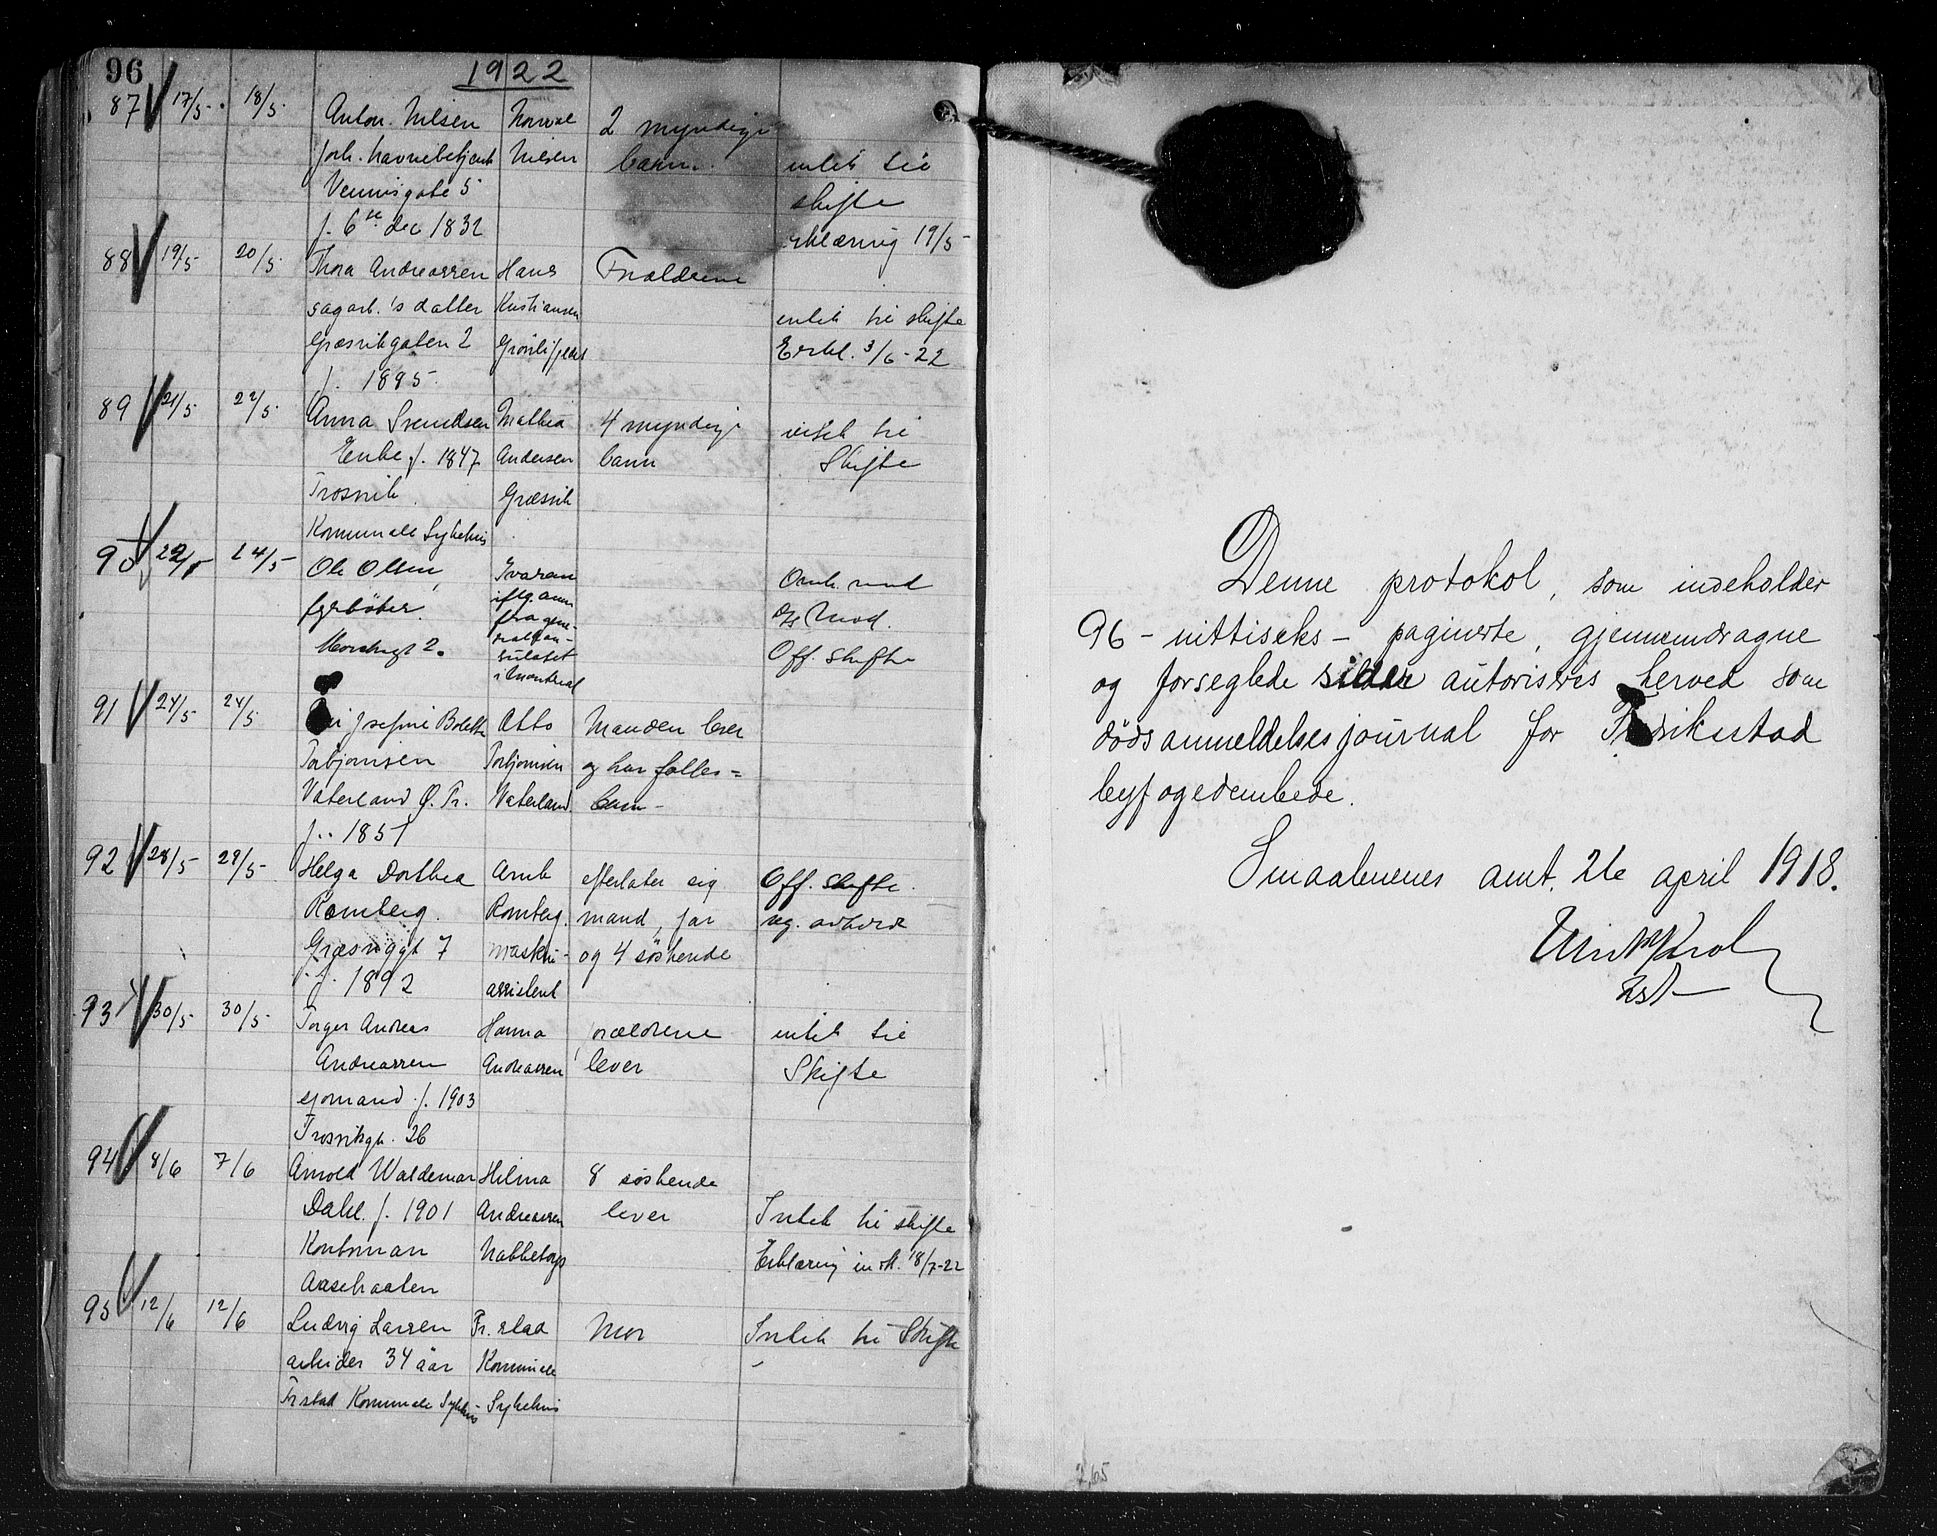 96
1922
87 17/5 18/5 Anton Nilsen 2 myndige
forh. havnebetjent Nilsen barn. intet til
5 skifte
f. 6te dec 1832 erklæring 19/5
88 19/5 20/5 Thora Andreassen Hans Forældrene
sagarb.'s datter Kristiansen intet til skifte
Græsvikgaten 2 Erkl. 3/6-22
f. 1895.
89 21/5 22/5 Anna Svendsen Mathea 4 myndige intet til
Enke f. 1847 Andersen barn Skifte
Trosvik Græsvik
Kommunale Sykehus
90 22/5 24/5 Ole Olsen,
fyrbøter. fra gene-
2. Off. skifte
i Montreal
91 24/5 24/5 Josefine Bolette Otto Manden lever
Torbjørnsen Torbjørnsen og har fælles-
Vaterland Ø. Fr. Vaterland barn
f. 1851
92 28/5 29/5 Helga Dorthea Arnt efterlater sig Off. skifte
Romberg. Romberg. mand, far
7 maskin- og 4 søskende
f. 1892 assistent
93 30/5 30/5 Torger Andreas Hanna forældrene intet til
Andreassen Andreassen lever Skifte
sjømand f. 1903
Trosvikgt. 26
94 8/6 7/6 Arnold Waldemar Hilma 8 søskende
Dahl. f. 1901 Andreassen lever Intet til skifte
Kontorman Nabbetorp Erklæring 18/7-22
95 12/6 12/6 Ludvig Larsen Fr.stad Mor Intet til Skifte
arbeider 34 aar Kommunale
Frstad Kommunale Sykehus Sykehus
Denne protokol, som indeholder
96 - nittiseks - paginerte, gjennemdragne
og forseglede sider autoriseres herved som
dødsanmeldelsesjournal for Fredrikstad
byfogedembede.
Smaalenenes amt, 26 april 1918.
265